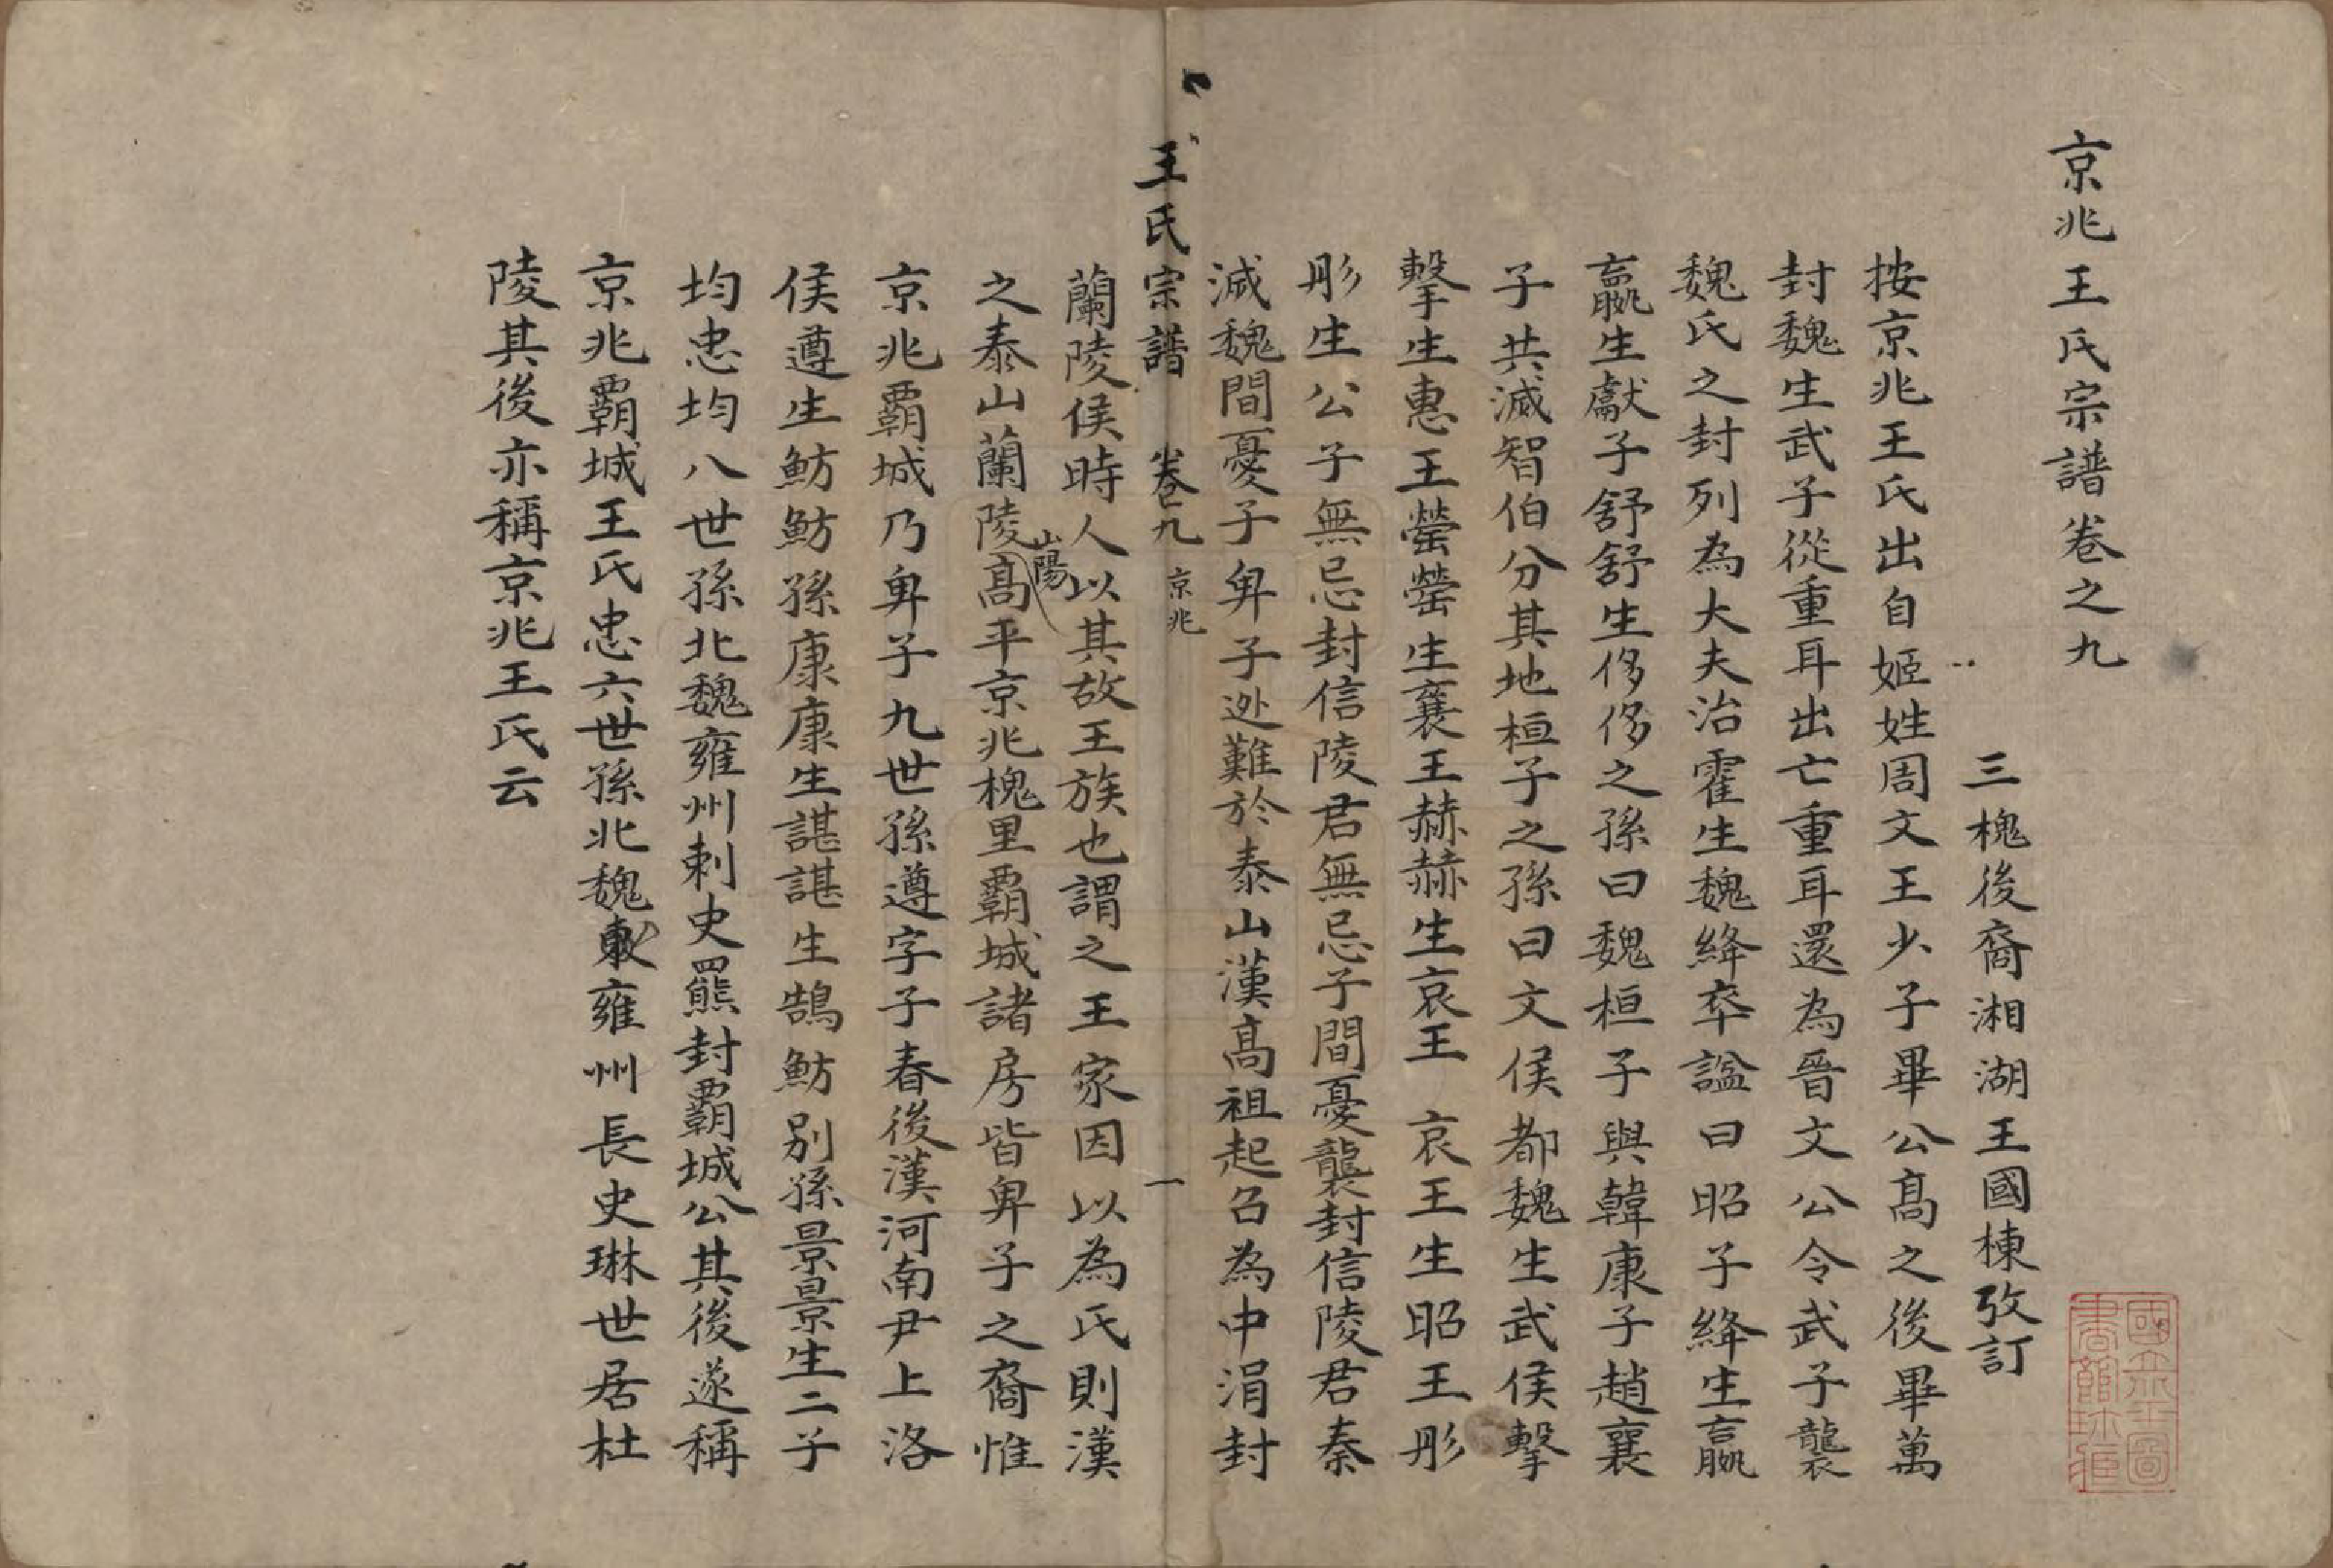 京兆王氏宗譜卷之九
三槐後裔湘湖王國棟攷訂
按京兆王氏出自姬姓周文王少子畢公高之後畢萬
封魏生武子從重耳出亡重耳還為晉文公令武子襲
魏氏之封列為大夫治霍生魏絳卒謚曰昭子絳生嬴
嬴生獻子舒舒生侈侈之孫曰魏桓子與韓康子趙襄
子共滅智伯分其地桓子之孫曰文侯都魏生武侯擊
擊生惠王罃罃生襄王赫赫生哀王 哀王生昭王彤
彤生公子無忌封信陵君無忌子間憂襲封信陵君秦
滅魏間憂子卑子逊難於泰山漢高祖起召為中涓封
王氏宗譜 卷九 京兆 一
蘭陵侯時人以其故王族也謂之王家因以為氏則漢
之泰山蘭陵山陽高平京兆槐里霸城諸房皆卑子之裔惟
京兆霸城乃卑子九世孫遵字子春後漢河南尹上洛
侯遵生魴魴孫康康生諶諶生鵠魴別孫景景生二子
均忠均八世孫北魏雍州刺史羆封霸城公其後遂稱
京兆霸城王氏忠六世孫北魏雍州長史琳世居杜
陵其後亦稱京兆王氏云
國立北平圖書館珍藏